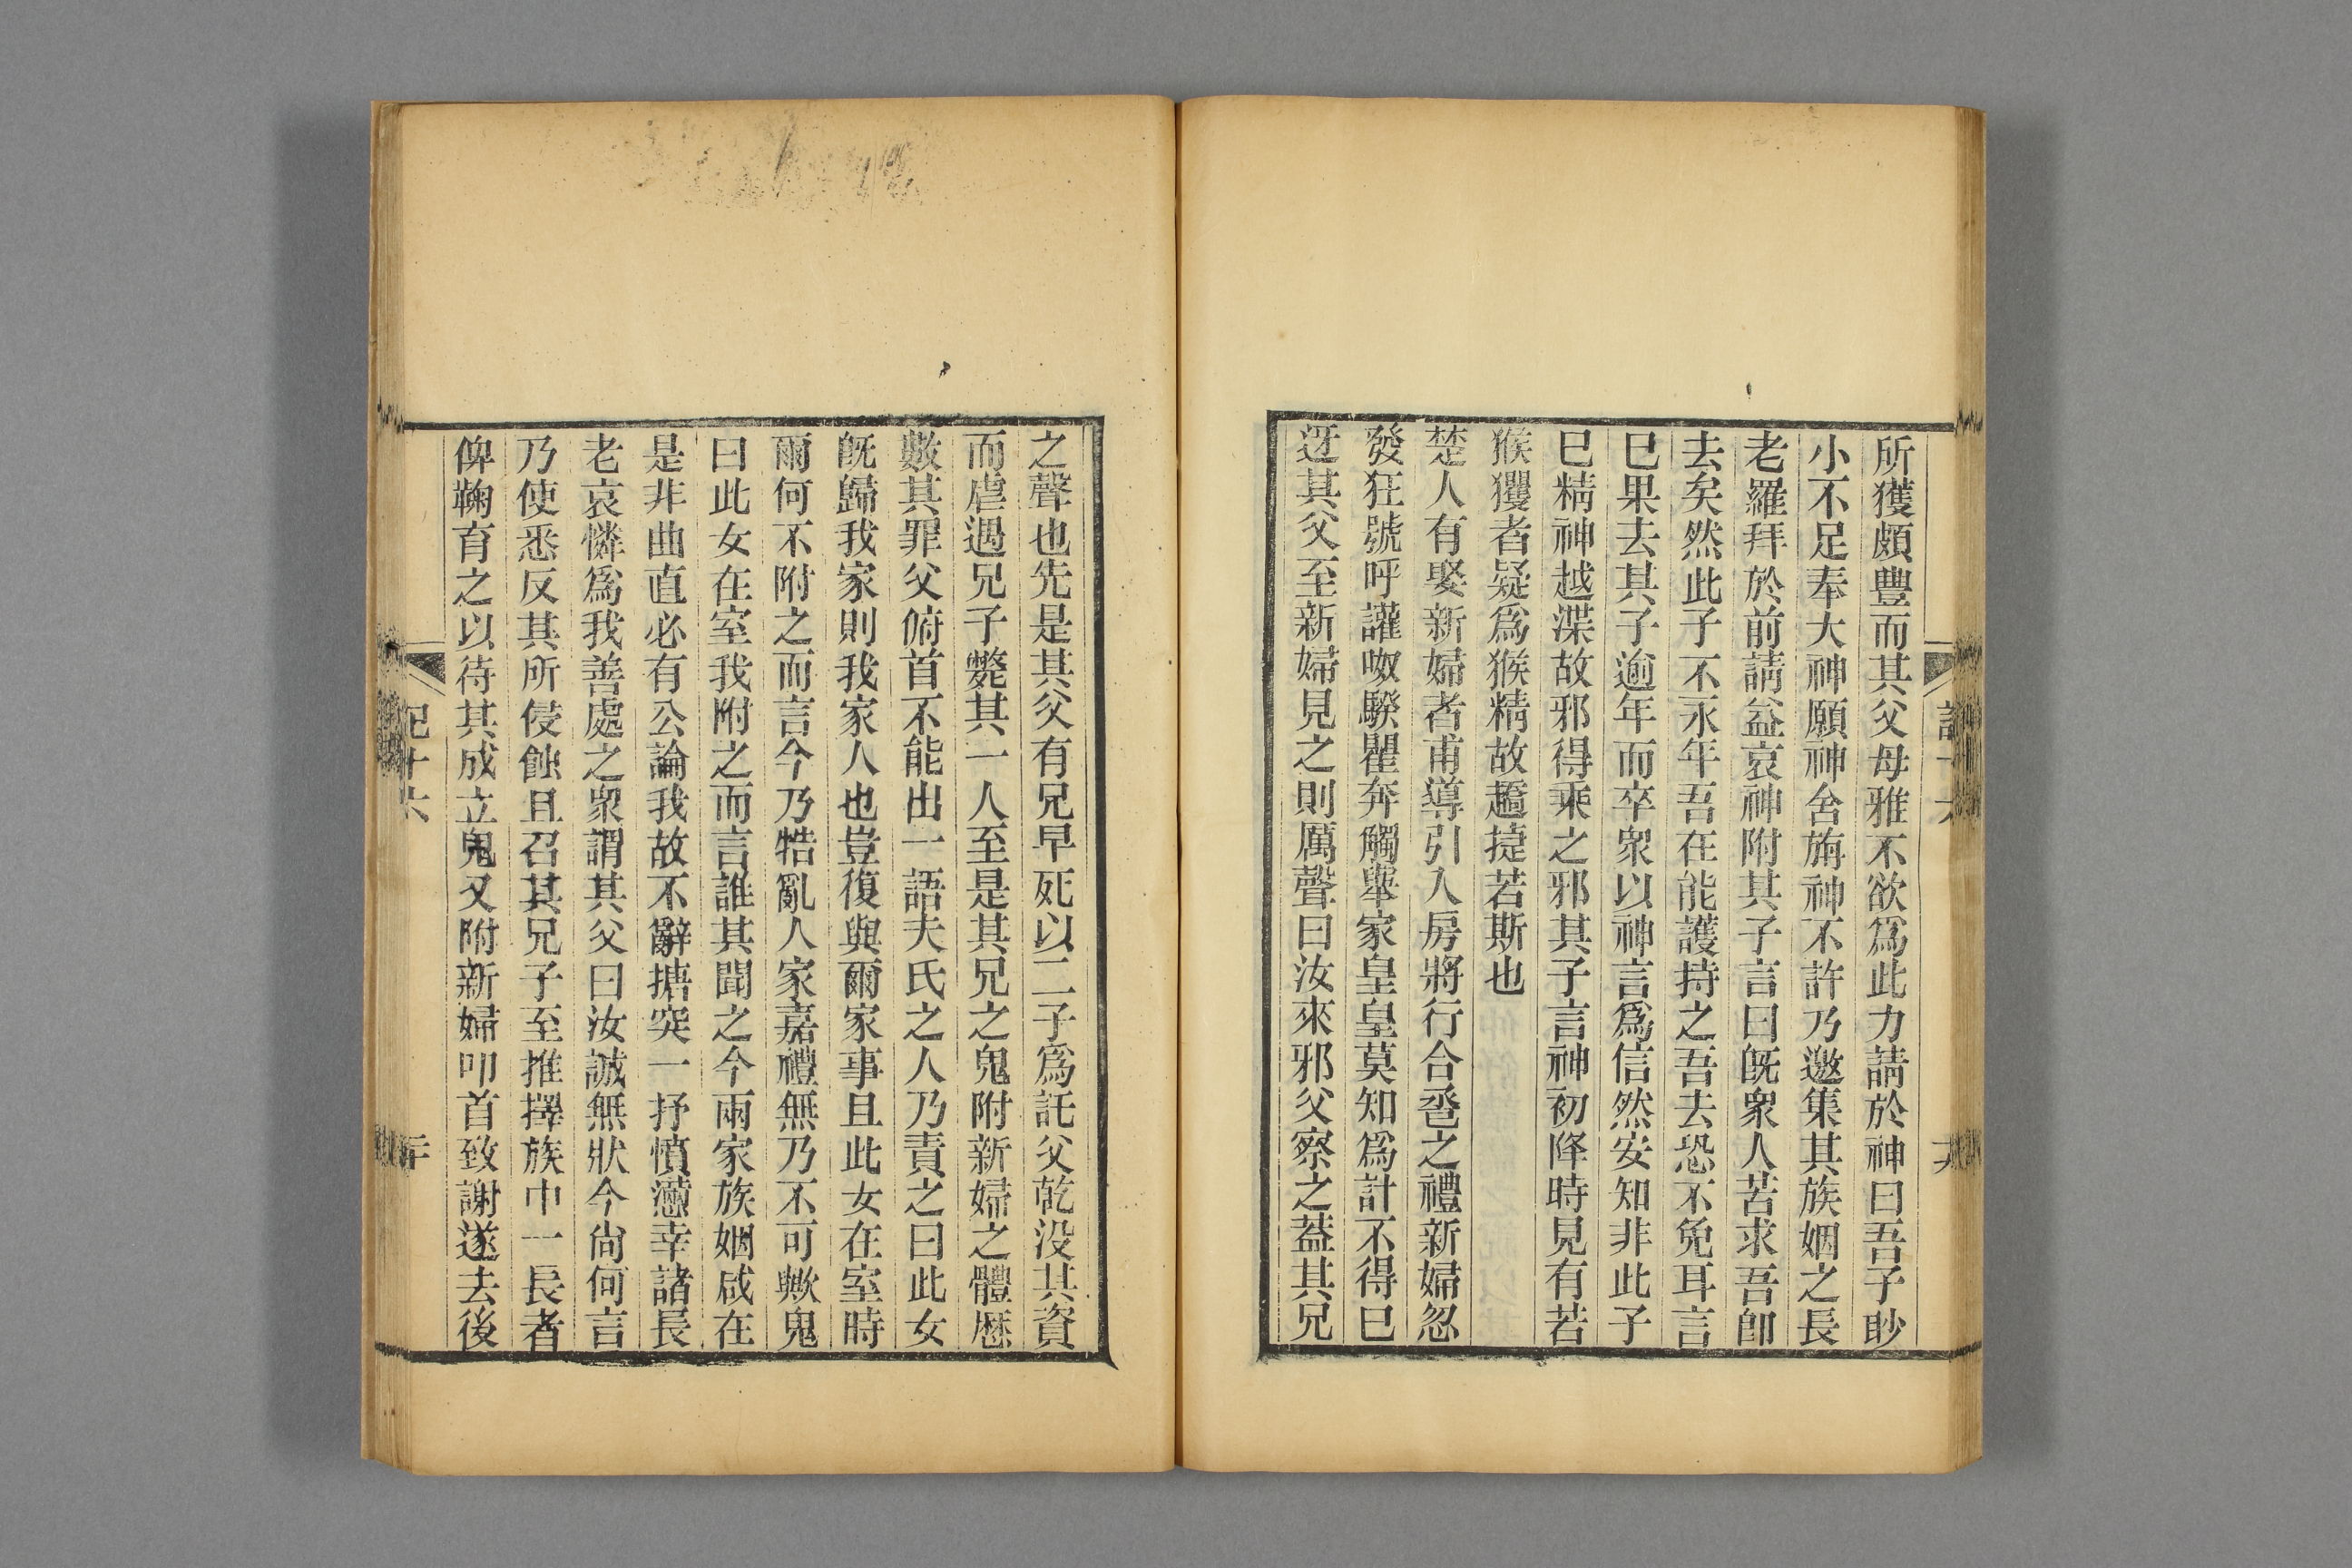 所獲頗豐而其父母雅不欲爲此力請於神曰吾子眇
小不足奉大神願神舍旃神不許乃邀集其族姻之長
老羅拜於前請益哀神附其子言曰旣衆人苦求吾卽
去矣然此子不永年吾在能護持之吾去恐不免耳言
已果去其子逾年而卒衆以神言爲信然安知非此子
已精神越渫故邪得乘之邪其子言神初降時見有若
猴玃者疑爲猴精故趫捷若斯也
楚人有娶新婦者甫導引入房將行合巹之禮新婦忽
發狂號呼讙呶睽瞿奔觸舉家皇皇莫知爲計不得已
迓其父至新婦見之則厲聲曰汝來邪父察之葢其兄
之聲也先是其父有兄早死以二子爲託父乾没其資
而虐遇兄子斃其一人至是其兄之鬼附新婦之體歷
數其罪父俯首不能出一語夫氏之人乃責之曰此女
旣歸我家則我家人也豈復與爾家事且此女在室時
爾何不附之而言今乃牿亂人家嘉禮無乃不可歟鬼
曰此女在室我附之而言誰其聞之今兩家族姻咸在
是非曲直必有公論我故不辭搪突一抒憤懣幸諸長
老哀憐爲我善處之衆謂其父曰汝誠無狀今尙何言
乃使悉反其所侵蝕且召其兄子至推擇族中一長者
俾鞠育之以待其成立鬼又附新婦叩首致謝遂去後